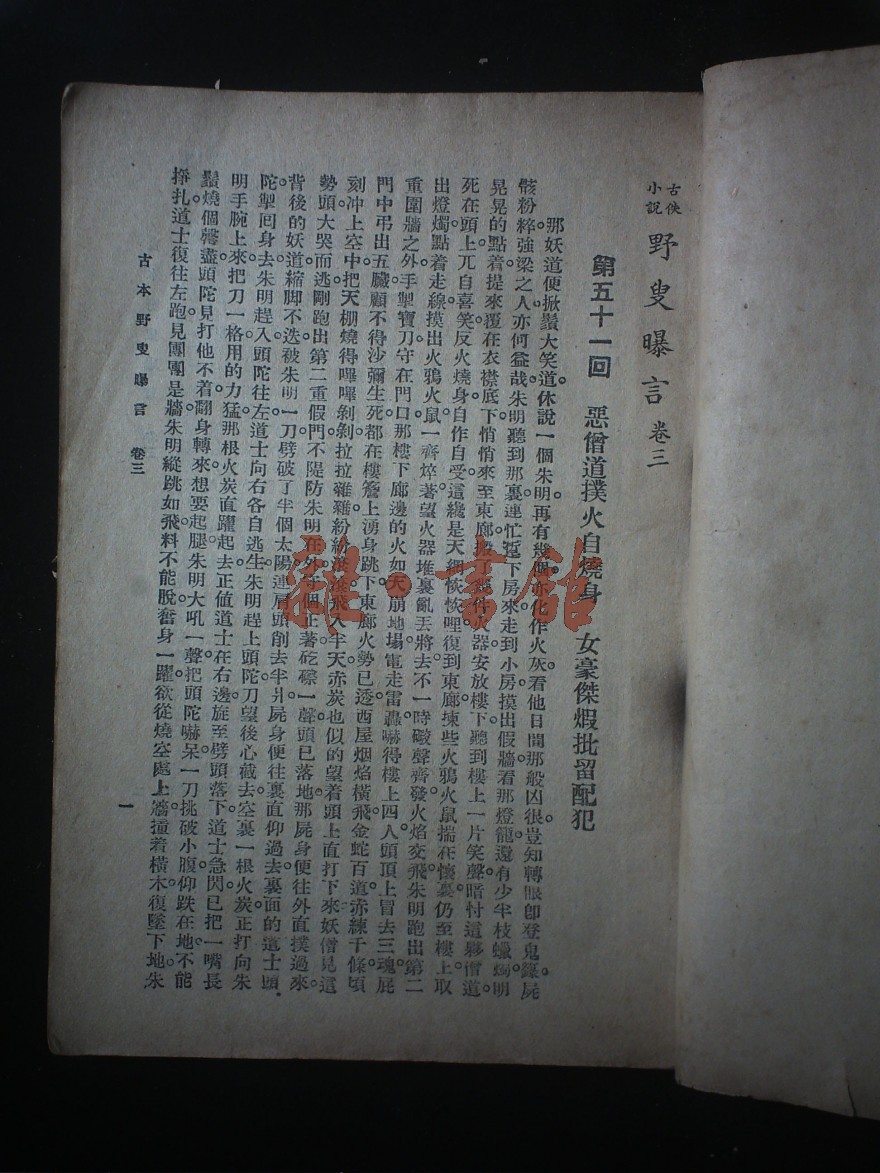 古俠小說 野叟曝言 卷三
第五十一回 惡僧道撲火自燒身 女豪傑煆批留配犯
那妖道便掀鬚大笑道。休說一個朱明。再有幾個。亦化作火灰。看他日間那般凶很。豈知轉眼卽登鬼籙。屍
骸粉粹。強梁之人。亦何益哉。朱明聽到那裏。連忙下房來。走到小房。摸出假牆。看那燈籠。還有少半枝蠟燭。明
晃晃的點着。提來覆在衣襟底下。悄悄來至東廊。搬了幾件火器。安放樓下。聽到樓上一片笑聲。暗忖這夥僧道。
死在頭上。兀自喜笑。反火燒身。自作自受。這纔是天網恢恢哩。復到東廊。揀些火鴉火鼠。揣在懷裏。仍至樓上。取
出燈燭。點着走線。摸出火鴉火鼠。一齊焠著。望火器堆裏亂丟將去。不一時。礮聲齊發。火焰交飛。朱明跑出第二
重圍牆之外。手掣寶刀。守在門口。那樓下廊邊的火。如天崩地塲。電走雷轟。嚇得樓上四人。頭頂上冒去三魂。屁
門中弔出五臟。顧不得沙彌生死。都在樓簷上湧身跳下。東廊火勢已透西屋。烟焰橫飛。金蛇百道。赤練千條。頃
刻冲上空中。把天棚燒得嗶嗶剝剝。拉拉雜雜。紛紛滾滾。飛入半天。赤炭也似的。望着頭上直打下來。妖僧見這
勢頭。大哭而逃。剛跑出第二重假門。不隄防朱明在外。守個正著。矻磜一聲。頭已落地。那屍身便往外直撲過來。
背後的妖道縮脚不迭。被朱明一刀。劈破了半個太陽。連肩頭削去半爿。屍身便往裏直仰過去。裏面的道士頭
陀。掣囘身去。朱明趕入。頭陀往左。道士向右。各自逃生。朱明趕上頭陀。刀望後心截去。空裏一根火炭。正打向朱
明手腕上來。把刀一格。用的力猛。那根火炭直躍起去。正値道士在右邊旋至。劈頭落下。道士急閃。已把一嘴長
鬚。燒個罄盡。頭陀見打他不着。翻身轉來。想要起腿。朱明大吼一聲。把頭陀嚇呆。一刀挑破小腹。仰跌在地。不能
掙扎。道士復往左跑。見團團是牆。朱明縱跳如飛。料不能脫。奮身一躍。欲從燒空處上牆。撞着橫木。復墜下地。朱
古本野叟曝言 卷三
一
雜·書館